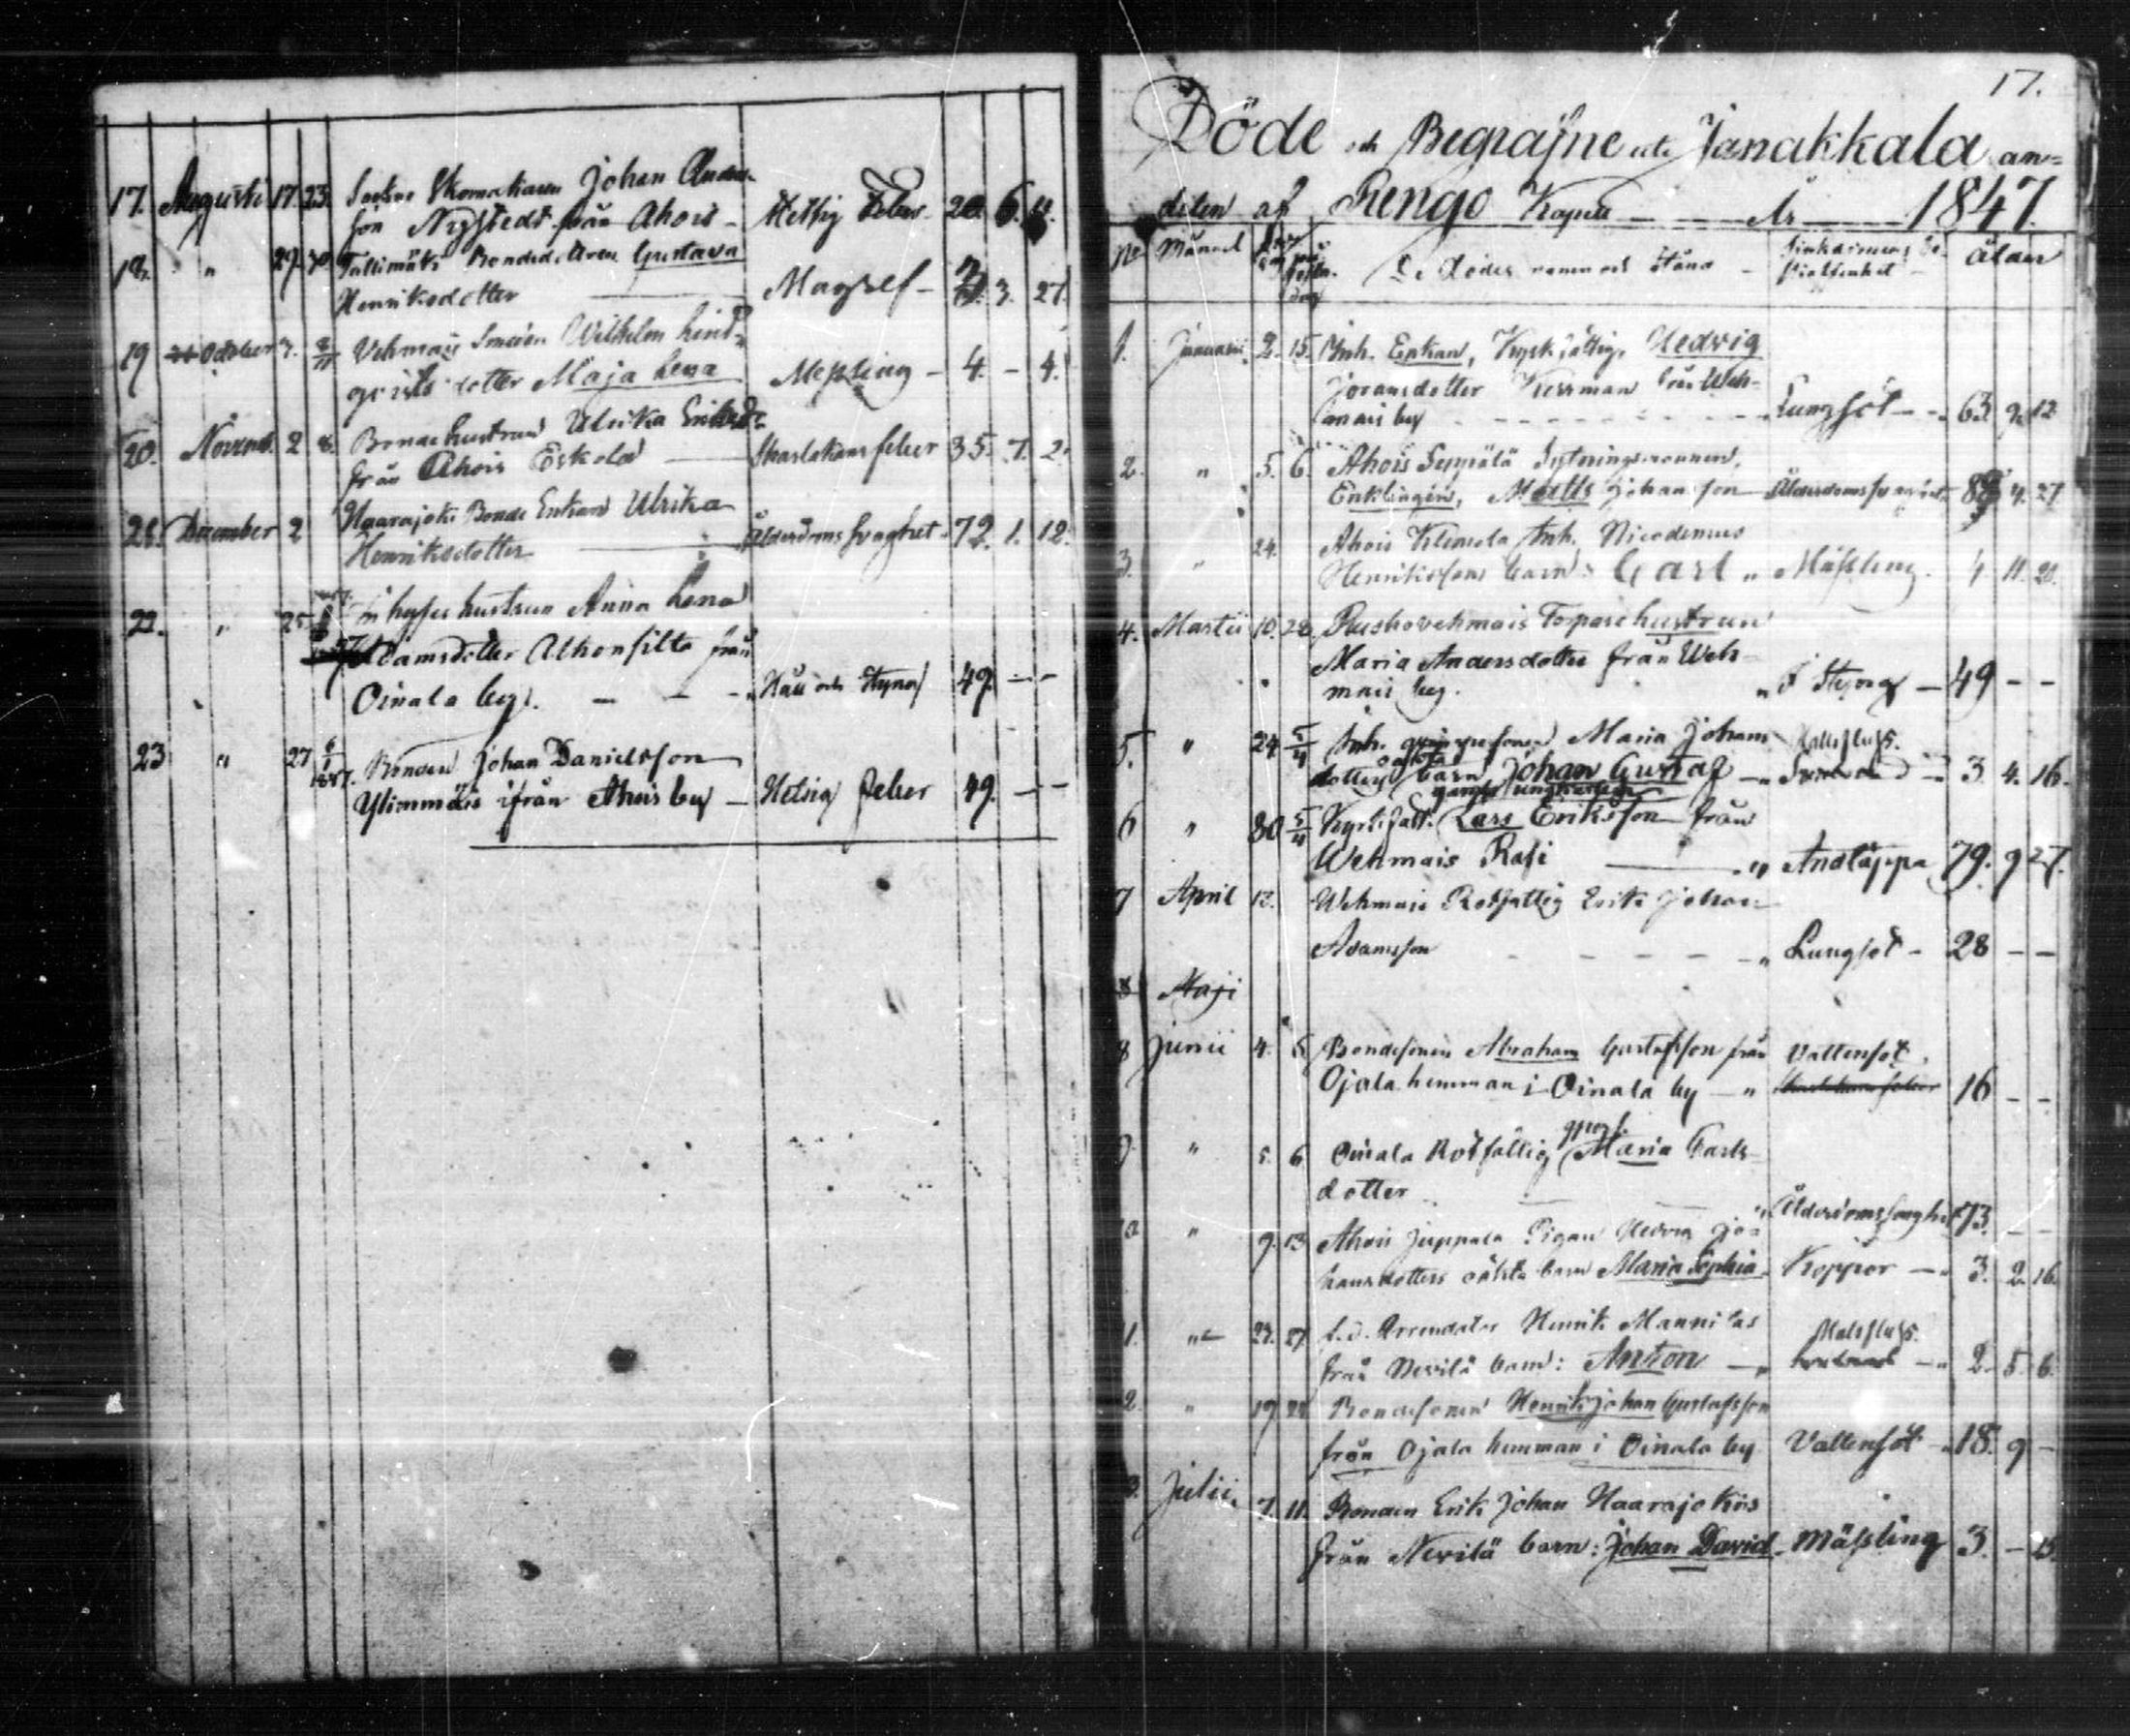 17. Augusti 17. 23. Skomakaren Johan Anders-
son Nystedt från Ahois - Hetsig Feber 20. 6.
18. " 29. 30 Tallimäki Bondedottren Gustava
Henriksdotter - Magref - 3. 27.
19 October 7. 8/11 Vehmais Wilhelm Lind-
qvists dotter Maja Lena Messling - 4. - 4.
20. Novemb. 2 8. Bondehustrun Ulrika Eriksd:
från Ahois Eskola Skarlakans feber 35. 7. 2.
21. December 2 Haarajoki Bonde Enkan Ulrika
Henriksdotter Ålderdoms svaghet 72. 1. 12.
22. " 25 Inhyses hustrun Anna Lena
Adamsdotter från
Oinala by. - - - Håll och Styng 49. - -
23 " 27 6/1 1847. Bonden Johan Danielsson
Ylimmäis ifrån Ahois by - Hetsig feber 49. - -
17.
Döde och Begrafne uti Janakkala an-
delen af Rengo Kapell År 1847.
No Månad De dödes namn och stånd Sjukdomens Be- ålder
skaffenhet
1. Januarii 2. 15. Inh. Enkan, Kyrkfattig, Hedvig
Jöransdotter från Weh-
mais by - - - Lungsot - 63. 9. 12
2. " 5. 6. Ahois Seppälä Sytningsmannen,
Enklingen, Matts Johansson Ålderdomssvaghet 4. 27
3. " 24. Ahois Klemola Inh. Nicodemus
Henrikssons barn: Carl " Mässling. 4 11. 20.
4. Martii 10. 28 Ruskovehmais Torpare hustrun
Maria Andersdotter från Weh-
mais by. " Styng - 49 - -
5. " 24 5/4 Inh. Maria Johans
oäkta Hallsfluss.
dotters barn Johan Gustaf - " 3. 4. 16.
6 " 30 5/4 Kyrkfatt. Lars Eriksson från
Wehmais Rasi " Andtäppa 79. 9 27.
7 April 12. Wehmais Rotfattig Erik Johan
Adamsson - - - " Lungsot - 28 - -
8 Maji
8 Junii 4. 6 Bondesonen Abraham Gustafsson från Vattensot.
Ojala hemman i Oinala by - " 16 - -
9. " 5. 6 Oinala Rotfattig Maria Carls-
dotter " Ålderdomssvaghet 73. - -
10 " 9. 13 Ahois Juppala Pigan Hedvig Jo-
hansdotters oäkta barn Maria Sophia. Koppor - 3. 2. 16.
11. " 23. 27 f.d. Arrendator Henrik Mannilas Halsfluss.
från Nevilä barn: Anton - " 2. 5. 6.
12. " 19 Bondesonen Henrik Johan Gustafsson
från Ojala hemman i Oinala by Vattensot 18. 9 -
13. Julii. 7. 11. Bonden Erik Johan Haarajokis
från Nevilä barn: Johan David - Mässling 3. - 15.